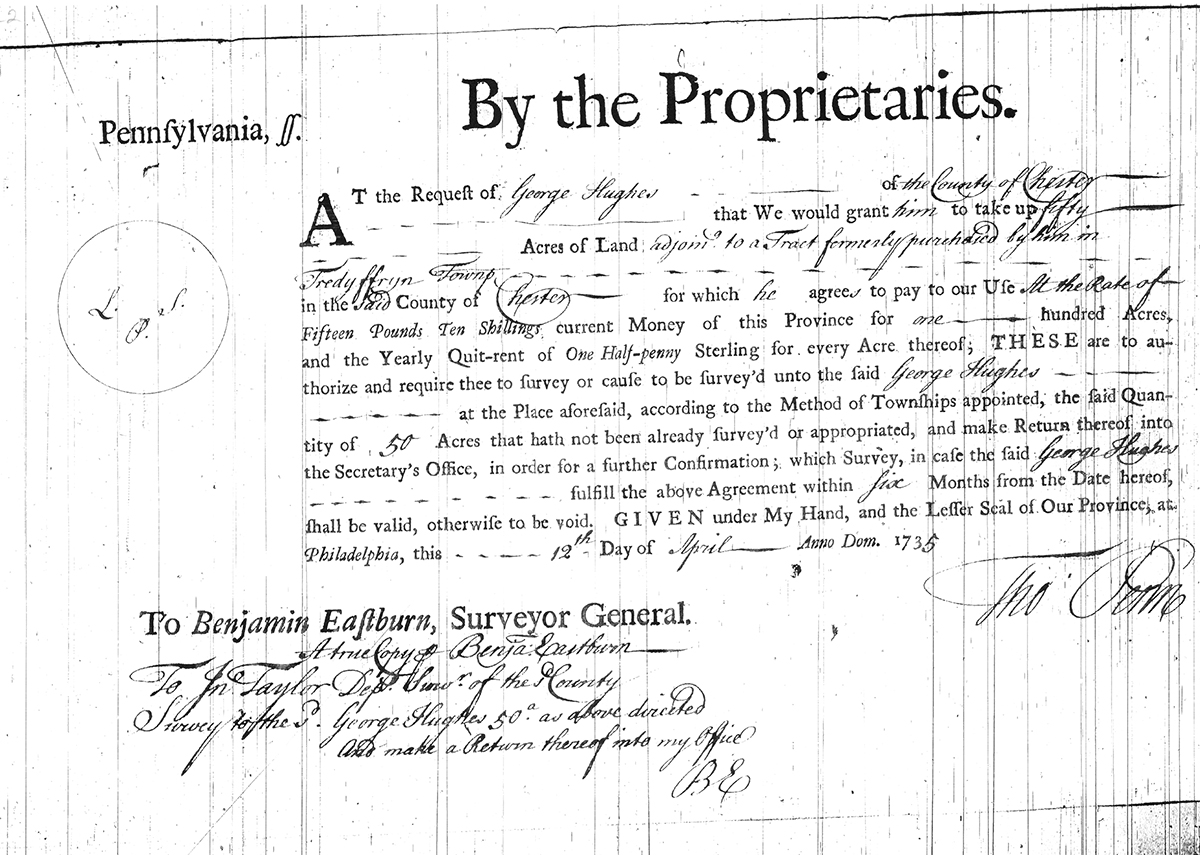 By the Proprietaries.
Pennſylvania, ſſ.
AT the Requeſt of George Hughes of the County of Chester
that We would grant him to take up fifty
Acres of Land adjoin.g to a Tract formerly purchased by him in
Tredyffryn Townp
in the said County of Chester for which he agrees to pay to our Uſe At the Rate of
Fifteen Pounds Ten Shillings current Money of this Province for one hundred Acres,
and the Yearly Quit-rent of One Half-penny Sterling for every Acre thereof; THESE are to au-
thorize and require thee to ſurvey or cauſe to be ſurvey'd unto the ſaid George Hughes
at the Place aforeſaid, according to the Method of Townſhips appointed, the ſaid Quan-
tity of 50 Acres that hath not been already ſurvey'd or appropriated, and make Return thereof into
the Secretary's Office, in order for a further Confirmation; which Survey, in caſe the ſaid George Hughes
fulfill the above Agreement within ſix Months from the Date hereof,
ſhall be valid, otherwiſe to be void. GIVEN under My Hand, and the Leſſer Seal of Our Province, at
Philadelphia, this 12th Day of April Anno Dom. 1735
L. S.
P.
Tho Penn
To Benjamin Eaſtburn, Surveyor General.
A true Copy Benja. Eastburn
To Jno Taylor Dep.t Surv.r of the sd County
Survey to the s.d George Hughes 50.a as above directed
And make a Return thereof into my Office
B E